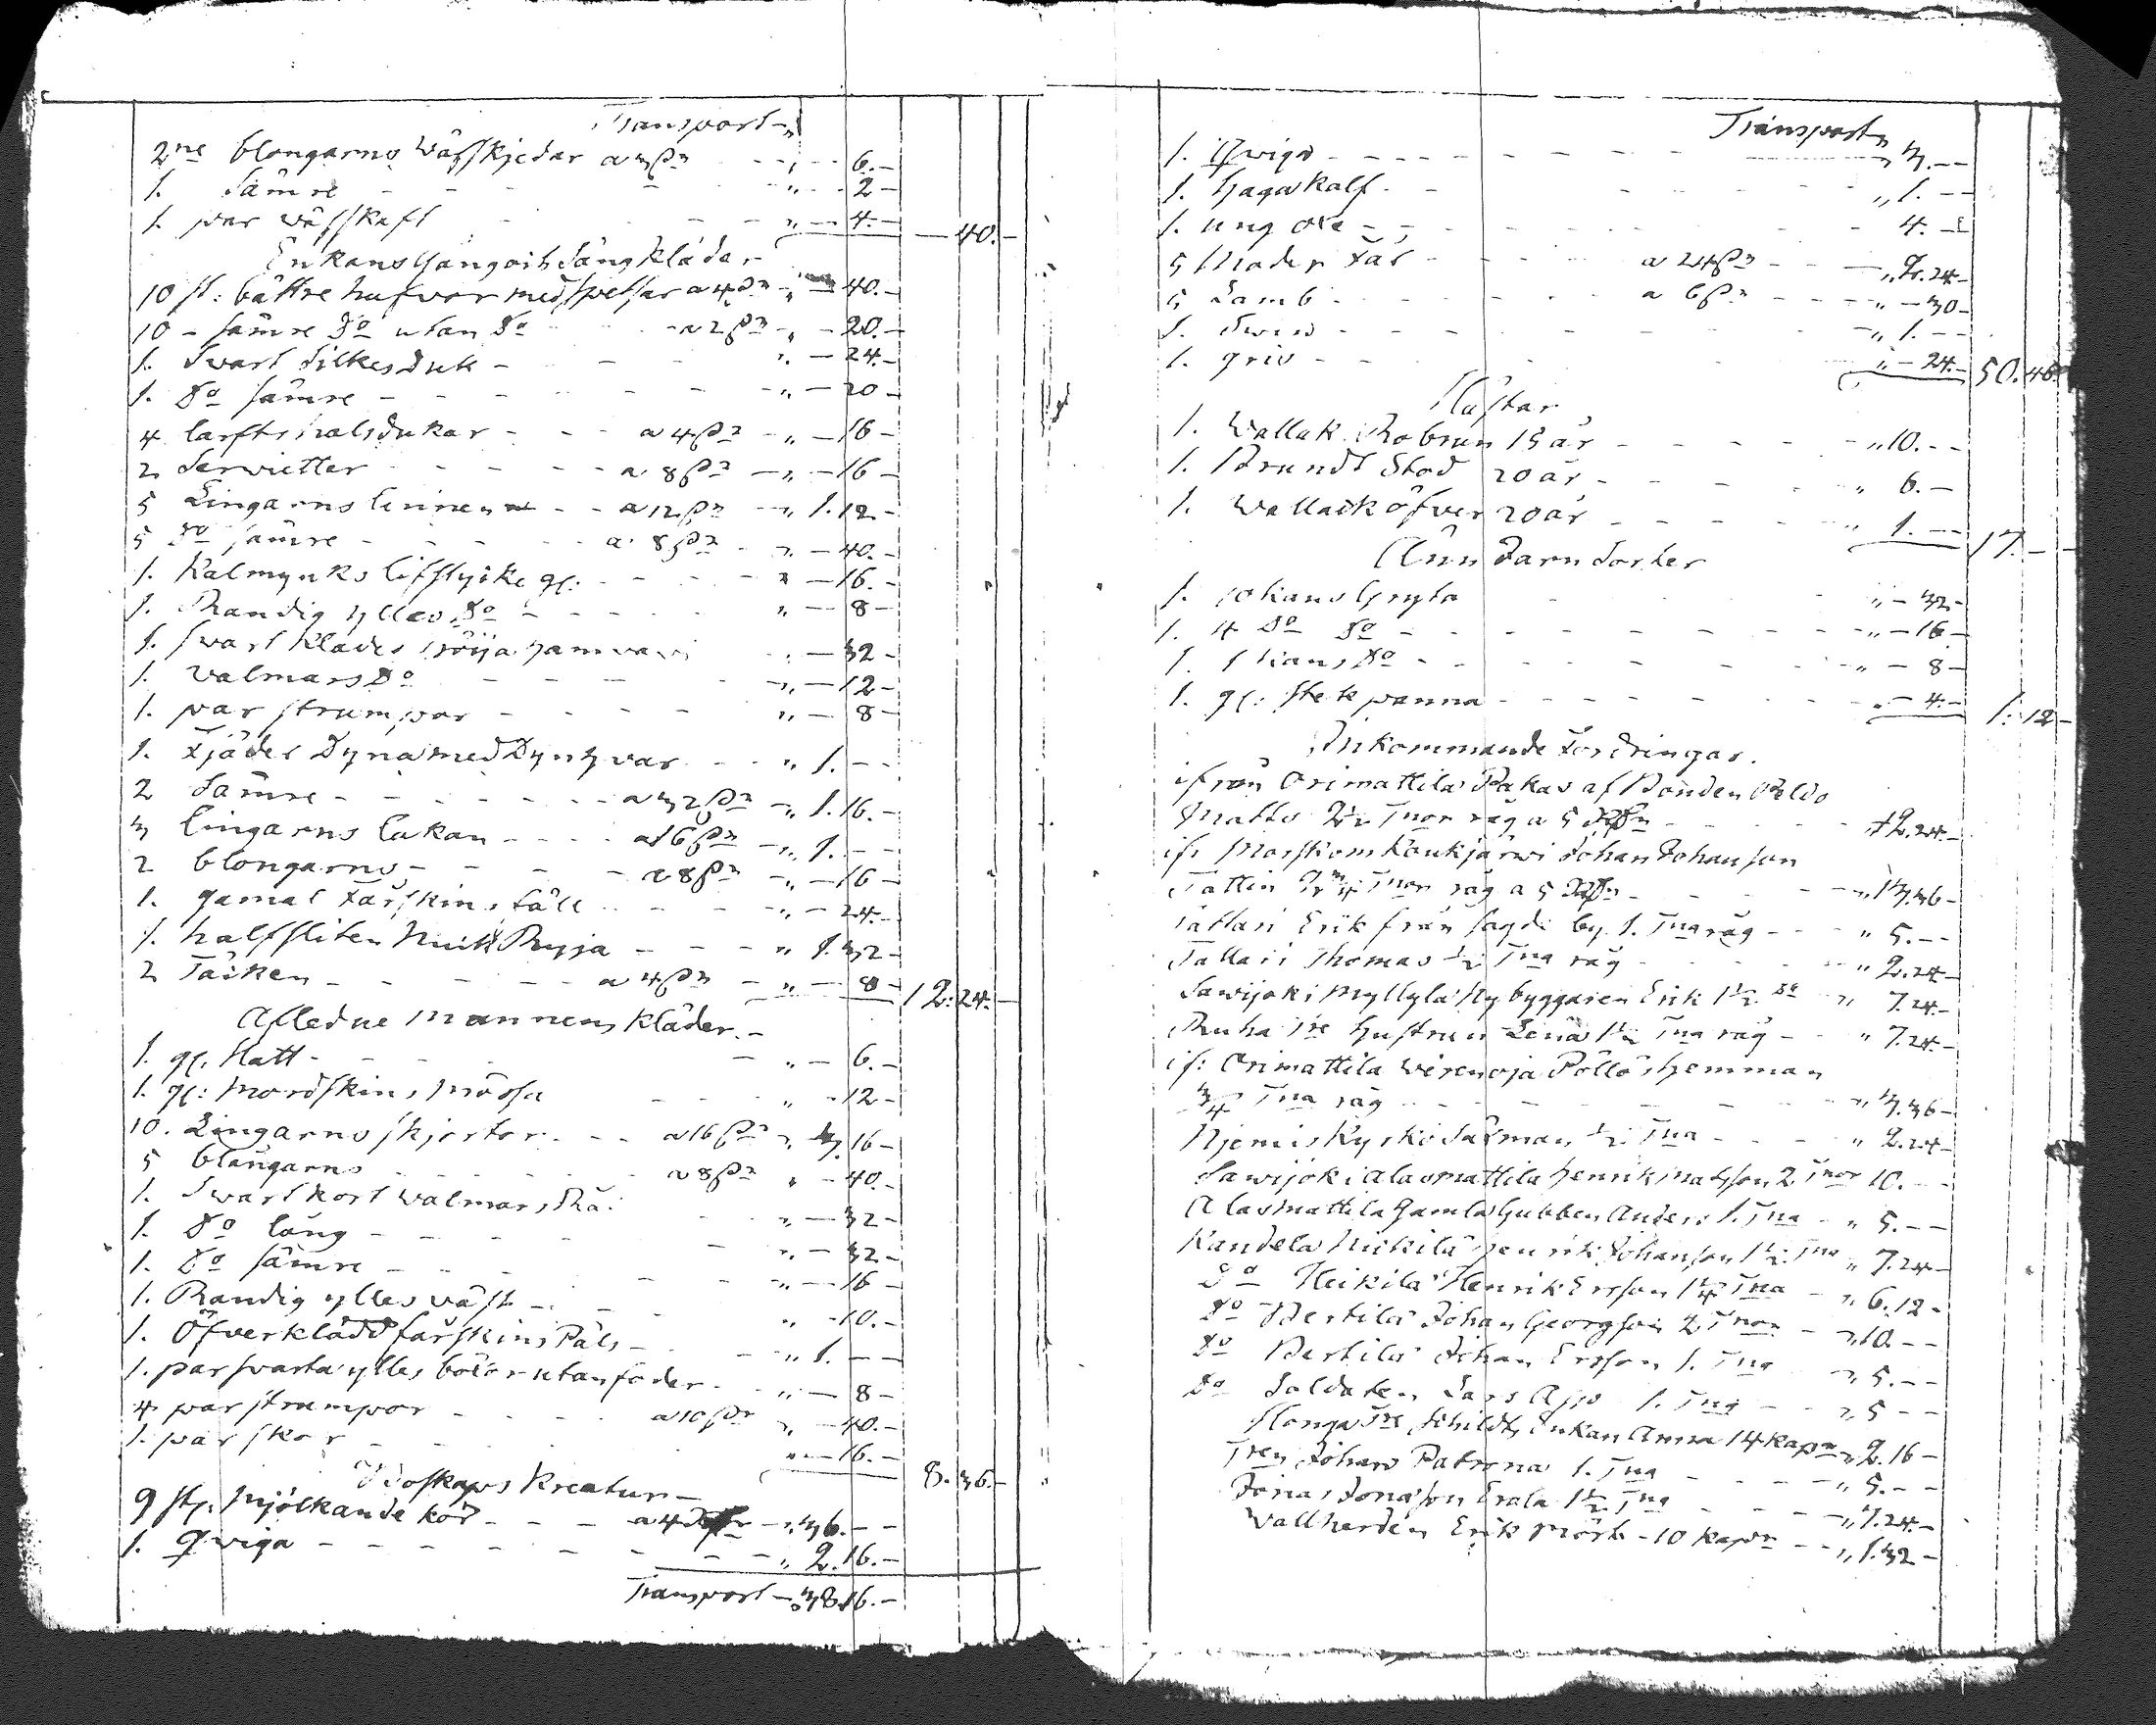 Transport
2ne blångarns Wäfskjedar a 3 sk 6.
1. Sämre 2
1. par Wäfskaft 4. 40.
Enkans Gång och Sängkläder
10 st: bättre hufvor med spetsar a 4 sk 40.
10 – sämre do utan do a 2 sk 20.
1. Svart Silkesduk 24.
1. do sämre 20
4 larfts halsdukar a 4 sk 16
2 Servietter a 8 sk 16
5 Lingarns linnen a 12 sk 1.12
5 do sämre a 8 sk 40.
1. Kalmynks lifstyke gl: 16.
1. Randig ylles do 8
1. Svart Klädes tröija 32
1. Valmars do 12
1. par strumpor 8
1. Fjäder Dyna med Dynhvar 1.
2 Sämre a 32 sk 1.16.
3 lingarns lakan a 16 sk 1.
2 blångarns a 8 sk 16
1. gamal Fårskins fäll 24.
1. half sliten Hvit Ryja 1.32
2 Täcken a 4 sk 8 12. 24.
Afledne Mannens Kläder.
1. gl. Hatt 6.
1. gl: Mordskins Mössa 12
10. Lingarns skjortor a 16 sk 3.16
5 blångarns a 8 sk 40.
1. Svart kort Valmars 32
1. do lång 32
1. do sämre 16
1. Randig ylles väst 10.
1. Öfverklädd fårskins Päls 1.
1. par svarta ylles böxor utan foder 8
4 par strumpor a 10 sk 40.
1. par skor 16. 8. 36.
Boskaps Kreatur
9 st. Mjölkande kor a 4 36.
1. Qviga 2.16.
Transport 38.16.
Transport
1. Qviga 3.
1. Haga Kalf 1.
1. ung oxe 4.
5 Moder Får a 24 sk 2.24
5 Lamb a 6 sk 30
1. Swin 1.
1. gris 24. 50. 46.
Hästar
1. Wallak Robrun 15 år 10.
1. Brundt Stod 20 år 6.
1. Wallack öfver 20 år 1. 17.
Ann Varu Sorter
1. Gryta 32
1. 4 do do 16
1. do 8
1. gl: stekpanna 4. 1. 12
Inkommande Fordringar.
ifrån Orimattila Pakas af Bonden Peldo
Matts 2½ Tnor råg a 5 12.24
ifr Morskom Koukjärwi Johan Johansson
Tattin 2¾ Tnor råg a 5 13.36
Tattari Erik från by 1. Tna råg 5.
Tattari Thomas ½ Tna råg 2.24
Sawijoki Myllylä Nybyggaren Erik 1½ do 7.24
Ruha Hustrun Lena 1½ Tna råg 7.24
if: Orimattila Wirenoja Pöllö hemman
¾ Tna råg 3.36
Njemis Kyskö Salman ½ Tna 2.24
Sawijoki Alaomattila Henrik Matsson 2 Tnor 10.
Alaomattila Gamla Gubben Anders 1. Tna 5.
Kandela Nickilä Henrik Johansson 1½ Tna 7.24
do Heikilä Henrik Ersson 1¼ Tna 6.12
do Bertilä Johan Georgsson 2 Tnor 10.
do Bertilä Johan Ersson 1. Tna 5.
do Soldaten Lars 1. Tna 5
Schildts Enkan Anna 14 kapr 2.16
Johan Patrona 1. Tna 5.
Jonas Jonasson Erola 1½ Tna 7.24
Wallherden Erik Mörk 10 kapr 1.32